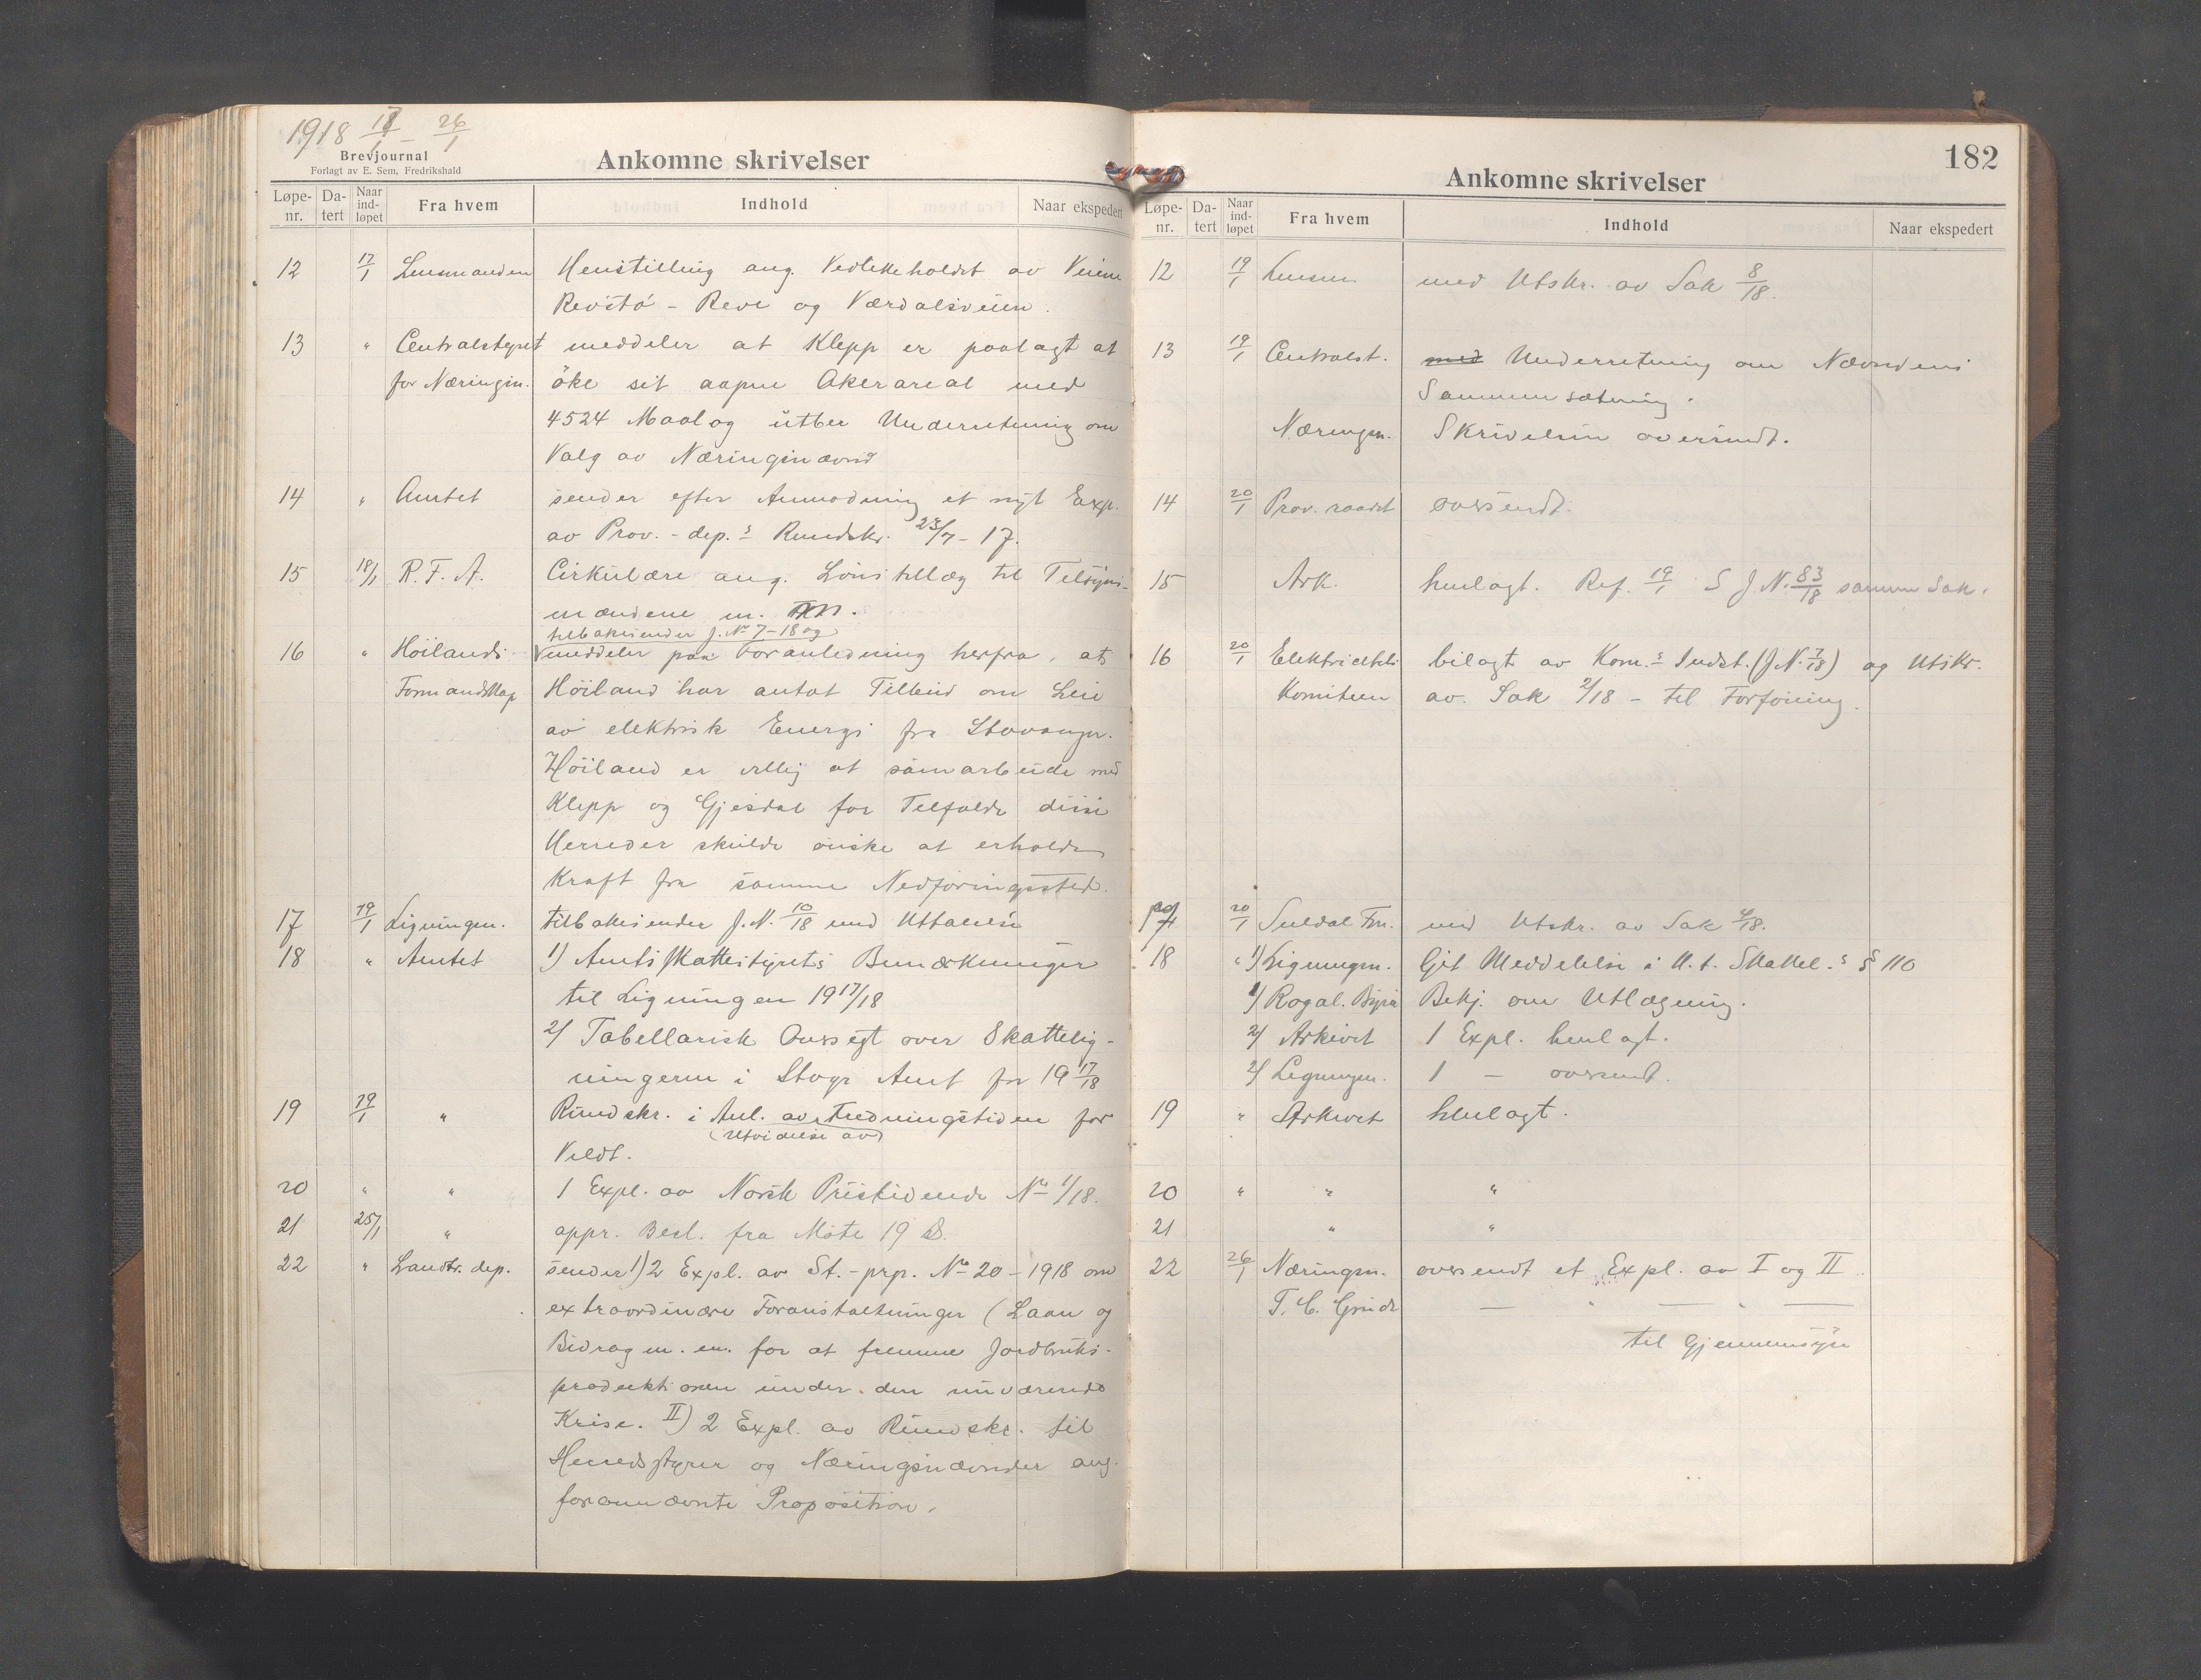 1918 17/1 - 26/1
Brevjournal
Forlagt av E. Sem, Fredrikshald
Ankomne skrivelser
Løpe-nr. Da-tert Naar ind-løpet Fra hvem Indhold Naar ekspedert
12 17/1 Lensmanden Henstilling ang. Vedlikeholdet av Veiene
Revstö - Reve og Værdalsveien.
13 " Centralstyret meddeler at Klepp er paalagt at
for Næringsn. öke sit aapne Akerareal med
4524 Maal og utber Underretning om
Valg av Næringsnævnd
14 " Amtet sender efter Anmodning et nyt Exp.
av Prov.-dep.s Rundskr. 23/7-17.
15 18/1 R. F. A. Cirkulære ang. Lönstillæg til Tilsyns-
mændene m.
tilbakesender J. No 7-18 og
16 " Höilands meddeler paa Foranledning herfra, at
Formandskap Höiland har antat Tilbud om Leie
av elektrisk Energi fra Stavanger.
Höiland er villig at samarbeide med
Klepp og Gjesdal for Tilfælde disse
Herreder skulde önske at erholde
Kraft fra samme Nedföringssted.
17 19/1 Ligningsn. tilbakesender J.N. 10/18 med Uttalelse
18 " Amtet 1) Amtsskattestyrets Bemærkninger
til Ligningen 1917/18
2) Tabellarisk Oversigt over Skattelig-
ningerne i Stvgr Amt for 1917/18
19 19/1 " Rundskr. i Anl. av Fredningstiden for
(Utvidelse av)
Vildt.
20 " " 1 Expl. av Norsk Pristidende No 1/18.
21 25/1 " appr. Besl. fra Möte 19 D.
22 " Landbr. dep. sender 1) 2 Expl. av St.-prp. No 20-1918 om
extraordinære Foranstaltninger (Laan og
Bidrag m. m. for at fremme Jordbruks-
produktionen under den nuværende
Krise. II) 2 Expl. av Rundskr. til
Herredsstyrer og Næringsnævnder ang.
forannævnte Proposition.
182
Ankomne skrivelser
Løpe-nr. Da-tert Naar ind-løpet Fra hvem Indhold Naar ekspedert
12 19/1 Lensm. med Utskr. av Sak 8/18.
13 19/1 Centralst. med Underretning om Nævndens
Sammensætning.
Næringsn. Skrivelsen oversendt.
14 20/1 Prov. raadet oversendt.
15 Ark. henlagt. Ref. 19/1 S J.N. 83/18 samme Sak.
16 20/1 Elektricitets bilagt av Kom.s Indst. (J.N. 7/18) og Utskr.
Komiteen av Sak 2/18 - til Forföining.
17 20/1 Suldal Fm. med Utskr. av Sak 4/18.
18 " 1) Ligningsn. Git Meddelelse i H. t. Skattel.s § 110
1) Rogal. Byraa Bekj. om Utlægning.
2) Arkivet 1 Expl. henlagt.
2) Ligningsn. 1 - oversendt.
19 " Arkivet henlagt.
20 " " "
21 " "
22 26/1 Næringsn. oversendt et Expl. av I og II
T. C. Grude — " — " —
til Gjennemsyn